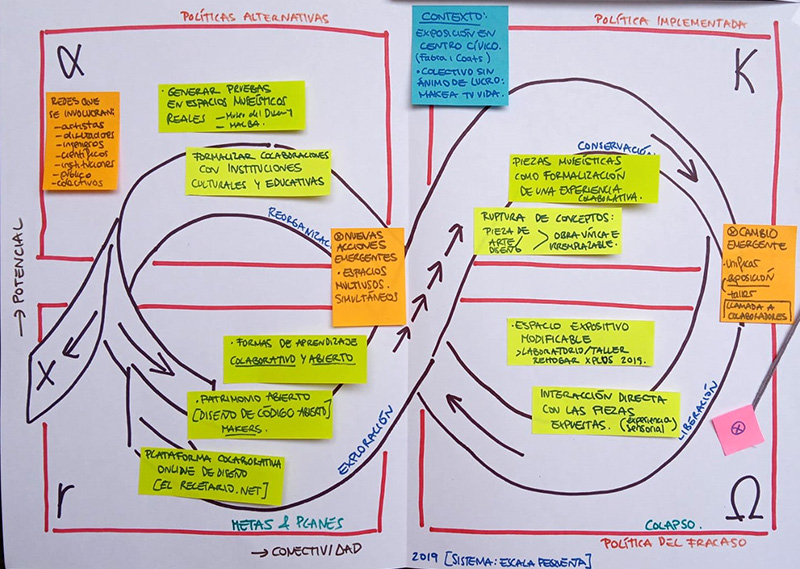 POLÍTICAS ALTERNATIVAS
α
REDES QUE
SE INVOLUCRAN:
- artistas
- diseñadores
- ingenieros
- científicos
- instituciones
- público
- colectivos
· GENERAR PRUEBAS
EN ESPACIOS MUSEÍSTICOS
REALES
- MALBA.
FORMALIZAR COLABORACIONES
CON INSTITUCIONES
CULTURALES Y EDUCATIVAS
REORGANIZAC
⊗ NUEVAS
ACCIONES
EMERGENTES
· ESPACIOS
MULTIUSOS.
SIMULTÁNEOS
→ POTENCIAL
X
· FORMAS DE APRENDIZAJE
COLABORATIVO Y ABIERTO
· PATRIMONIO ABIERTO
[DISEÑO DE CÓDIGO ABIERTO]
MAKERS.
PLATAFORMA COLABORATIVA
ONLINE DE DISEÑO
[EL RECETARIO.NET]
EXPLORACIÓN
r
METAS & PLANES
→ CONECTIVIDAD
CONTEXTO:
EXPOSICIÓN EN
CENTRO CÍVICO.
(Fabra i Coats)
· COLECTIVO SIN
ÁNIMO DE LUCRO:
MAKEA TU VIDA.
POLÍTICA IMPLEMENTADA
K
CONSERVACIÓN
PIEZAS MUSEÍSTICAS
COMO FORMALIZACIÓN
DE UNA EXPERIENCIA
COLABORATIVA.
RUPTURA DE CONCEPTOS:
PIEZA DE
ARTE/
DISEÑO
> OBRA ÚNICA E
IRREMPLAZABLE.
⊗ CAMBIO
EMERGENTE
- unificar
exposición
/taller
LLAMADA A
COLABORADORES
· ESPACIO EXPOSITIVO
MODIFICABLE
> LABORATORIO/TALLER
REHOGAR XPLUS 2019.
INTERACCIÓN DIRECTA
CON LAS PIEZAS
EXPUESTAS. (experiencia
sensorial)
LIBERACIÓN
⊗
Ω
COLAPSO.
POLÍTICA DEL FRACASO
2019 [SISTEMA: ESCALA PEQUEÑA]